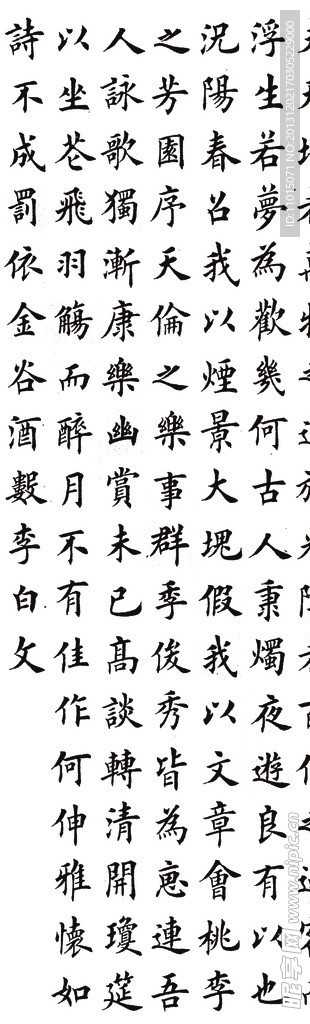 浮生若夢為歡幾何古人秉燭夜遊良有以也
況陽春召我以煙景大塊假我以文章會桃李
之芳園序天倫之樂事群季俊秀皆為惠連吾
人詠歌獨漸康樂幽賞未已高談轉清開瓊筵
以坐花飛羽觴而醉月不有佳作何伸雅懷如
詩不成罰依金谷酒數李白文
ID:11015071 NO:20131202170305229000
昵图网 www.nipic.cn